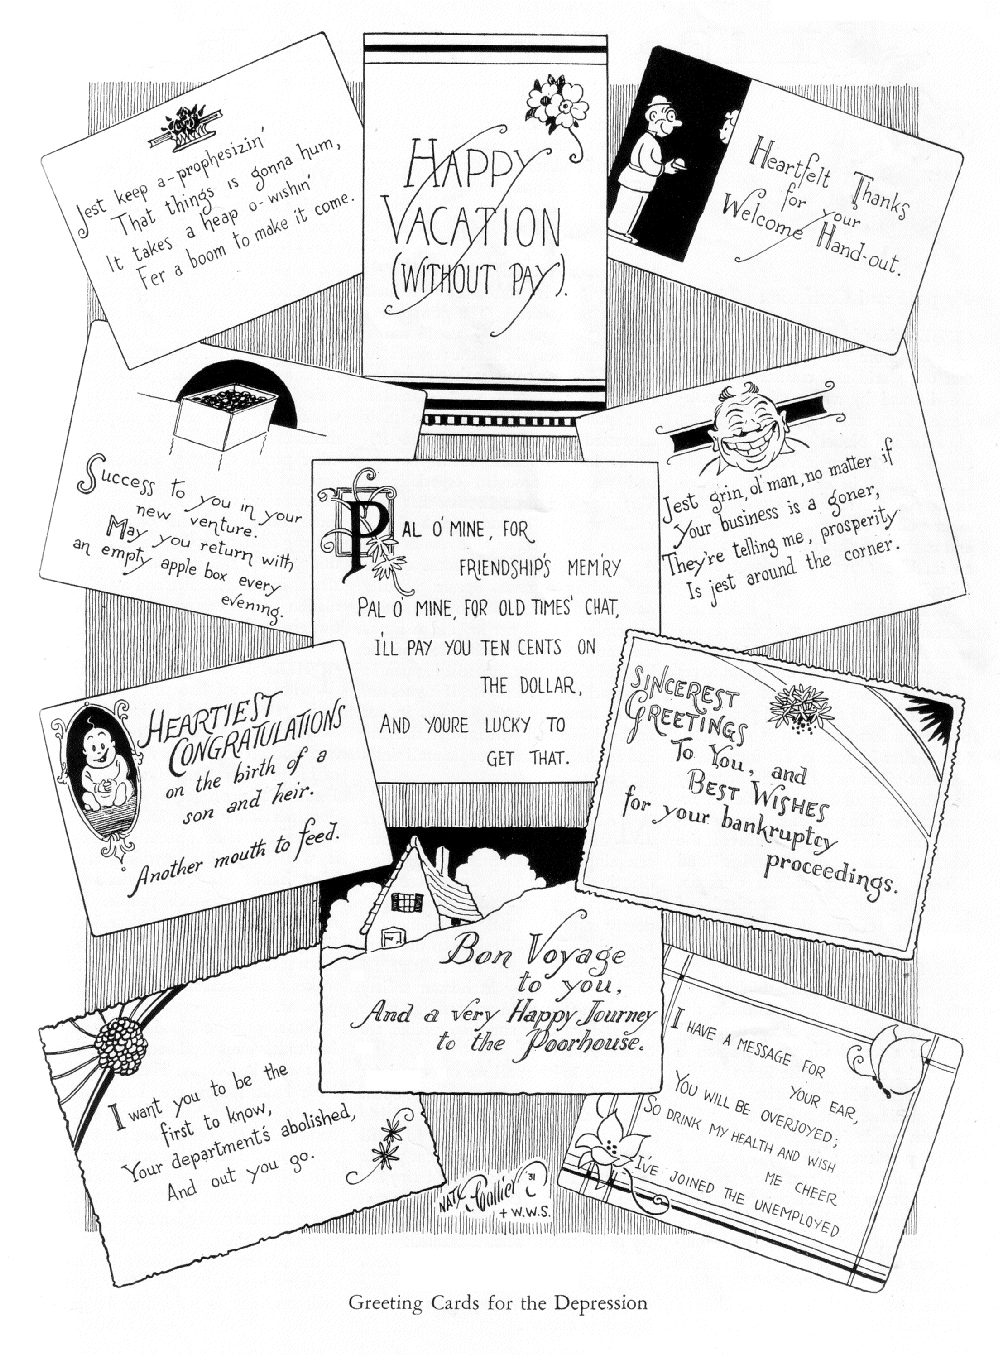 Jest keep a-prophesizin'
That things is gonna hum,
It takes a heap o-wishin'
Fer a boom to make it come.
HAPPY
VACATION
(WITHOUT PAY).
Heartfelt Thanks
for your
Welcome Hand-out.
Success to you in your
new venture.
May you return with
an empty apple box every
evening.
Jest grin, ol' man, no matter if
Your business is a goner,
They're telling me, prosperity
Is jest around the corner.
PAL O' MINE, FOR
FRIENDSHIP'S MEM'RY
PAL O' MINE, FOR OLD TIMES' CHAT,
I'LL PAY YOU TEN CENTS ON
THE DOLLAR,
AND YOURE LUCKY TO
GET THAT.
HEARTIEST
CONGRATULATIONS
on the birth of a
son and heir.
Another mouth to feed.
SINCEREST
GREETINGS
To You, and
BEST WISHES
for your bankruptcy
proceedings.
Bon Voyage
to you,
And a very Happy Journey
to the Poorhouse.
I want you to be the
first to know,
Your department's abolished,
And out you go.
I HAVE A MESSAGE FOR
YOUR EAR,
YOU WILL BE OVERJOYED;
SO DRINK MY HEALTH AND WISH
ME CHEER
I'VE JOINED THE UNEMPLOYED
NATE Collier 31
+ W.W.S.
Greeting Cards for the Depression